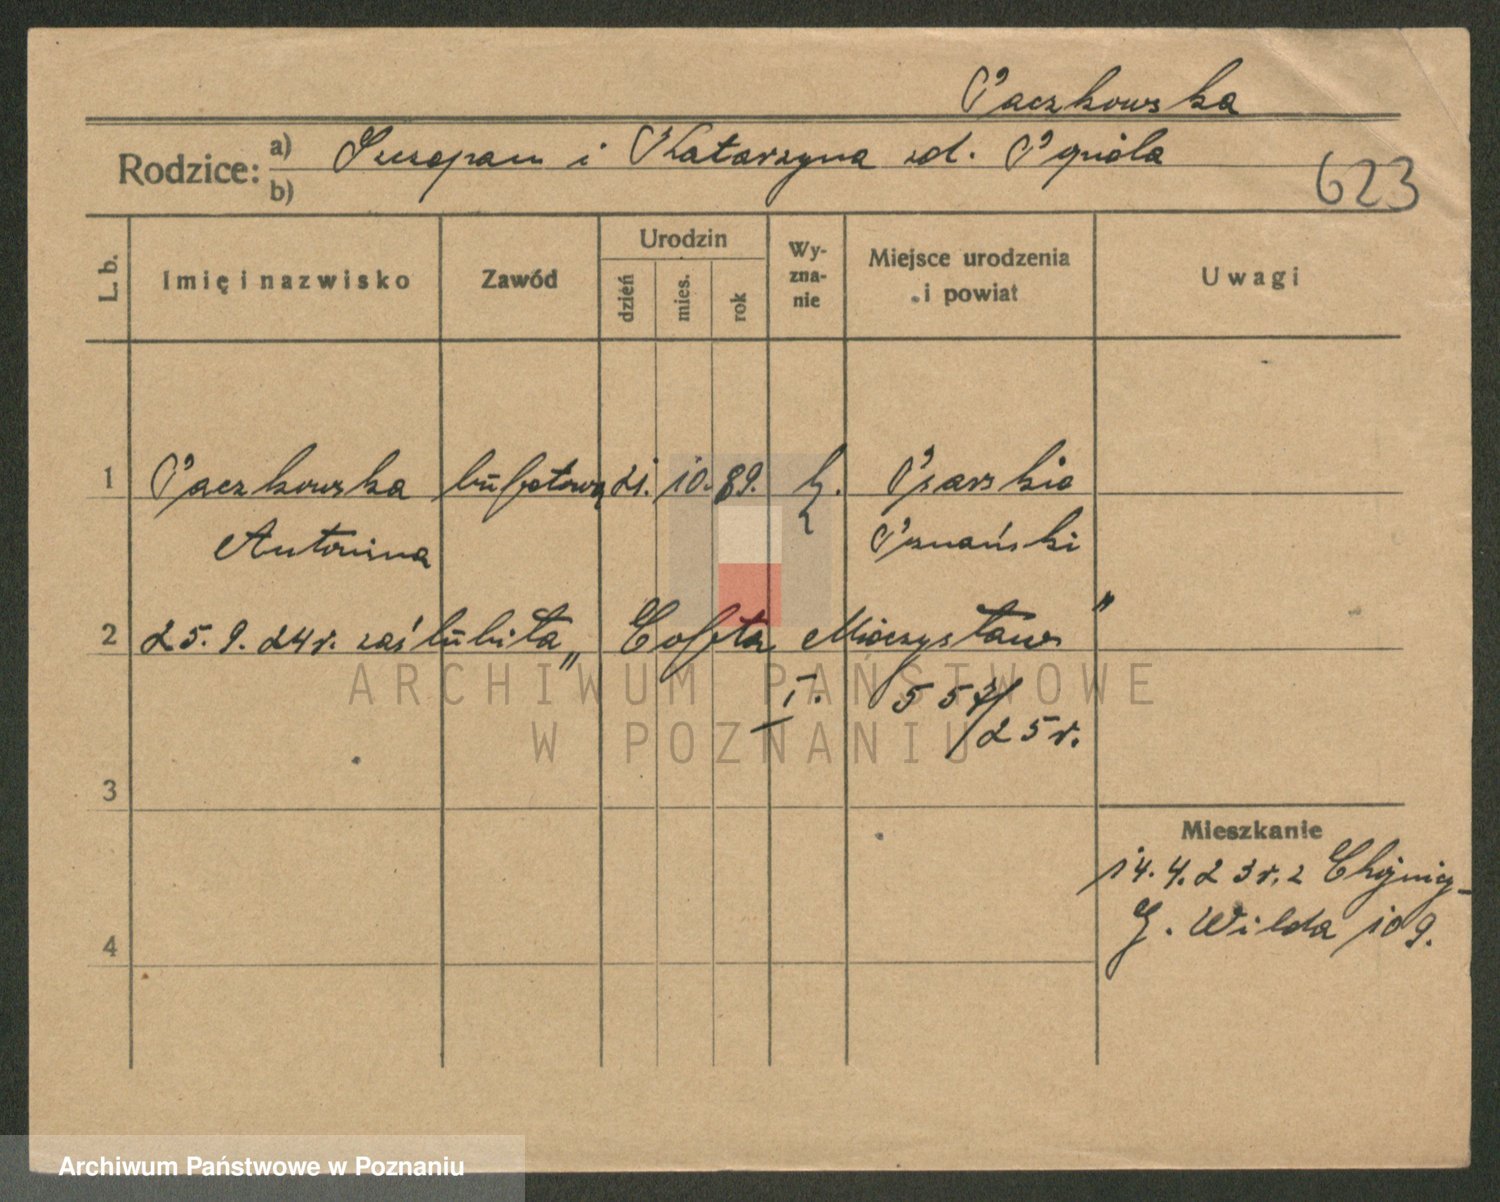 Paczkowska
Rodzice: a) Szczepan i Katarzyna zd.
b)
623
L. b.
Imię i nazwisko
Zawód
Urodzin
dzień
mies.
rok
Wy-
zna-
nie
Miejsce urodzenia
i powiat
Uwagi
1 Paczkowska bufetowa 21. 10. 89. k. Psarskie
Antonina Poznański
2 25. 9. 24 r. zaślubiła „ Mieczysław "
I. 557/25 r.
3
4
Mieszkanie
14. 4. 23 r. z Chojnicy-
G. Wilda 109.
ARCHIWUM PAŃSTWOWE
W POZNANIU
Archiwum Państwowe w Poznaniu